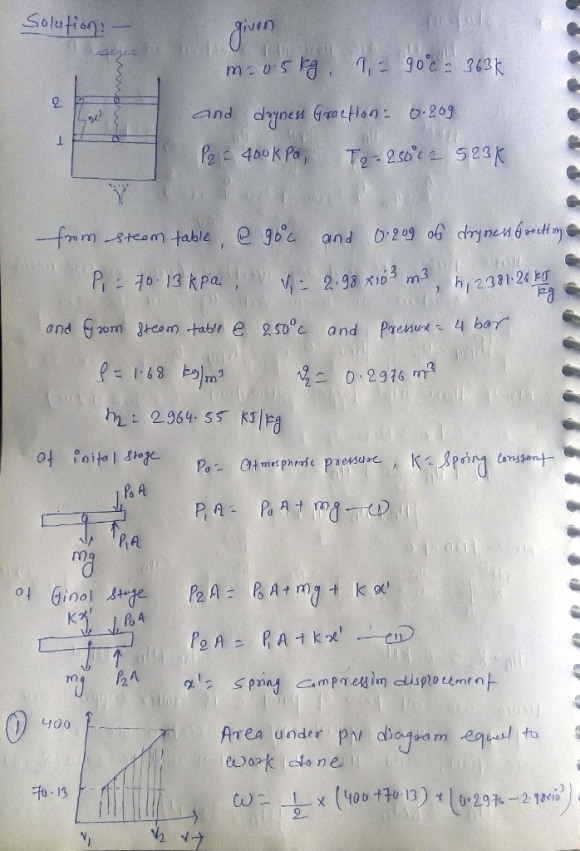 Solution:-
given
m = 0.5 kg, T₁ = 90°c = 363k
2
x'
1
and dryness fraction = 0.209
P₂ = 400kPa, T₂ = 250°c = 523k
from steam table, @ 90°c and 0.209 of dryness fraction
P₁ = 70.13 kPa, V₁ = 2.98 x10⁻³ m³, h₁ = 2381.26 KJ/kg
and from steam table @ 250°c and Pressure = 4 bar
ρ = 1.68 kg/m³ v₂ = 0.2976 m³
h₂ = 2964.55 KJ/kg
at inital stage P₀ = atmospheric pressure, K = Spring constant
P₀A
P₁A
mg
P₁A = P₀A + mg —(I)
at final stage P₂A = P₀A + mg + Kx'
Kx' P₀A
mg P₂A
P₂A = P₁A + Kx' —(II)
x' = spring compression displacement
(1) 400
70.13
V₁ V₂ V→
Area under PV diagram equal to
work done
W = 1/2 x (400+70.13) x (0.2976 - 2.98x10⁻³)